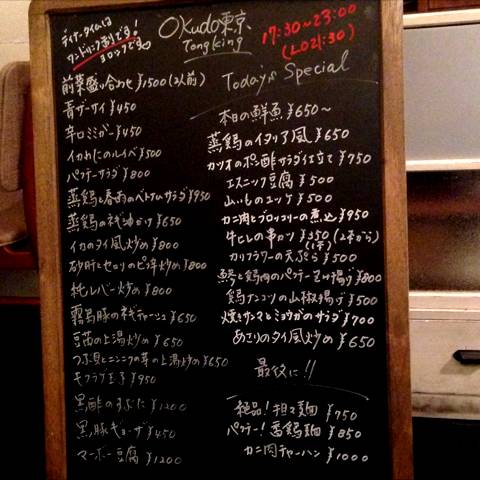 ディナータイムは
ワンドリンク制です!
ヨロシクです
OKudo東京
Tongking
17:30~23:00
(L021:30)
前菜盛り合わせ ¥1500(2人前)
青ザーサイ ¥450
辛口ミミガー ¥450
イカわたのルイベ ¥500
パクチーサラダ ¥800
蒸鶏と春雨のベトナムサラダ ¥950
蒸鶏のネギ油かけ ¥650
イカのタイ風炒め ¥800
砂肝とセロリのピリ辛炒め ¥800
純レバー炒め ¥800
霧島豚のネギチャーシュー ¥650
豆苗の上湯炒め ¥650
つぶ貝とニンニクの芽の上湯炒め ¥650
モクラゲ玉子 ¥950
黒酢のすぶた ¥1200
黒豚ギョーザ ¥450
マーボー豆腐 ¥1200
Today's Special
本日の鮮魚 ¥650~
蒸鶏のイタリア風 ¥650
カツオのポン酢サラダ仕立て ¥750
エスニック豆腐 ¥500
山いものユッケ ¥500
カニ肉とブロッコリーの煮込 ¥950
牛ヒレの串カツ ¥350 (2本から)
(1本)
カリフラワーの天ぷら ¥500
鯵と鶏肉のパクチー包み揚げ ¥800
鶏ナンコツの山椒揚げ ¥500
焼きサンマとミョウガのサラダ ¥700
あさりのタイ風炒め ¥650
最後に!!
絶品!担々麺 ¥750
パクチー!蒸鶏麺 ¥850
カニ肉チャーハン ¥1000